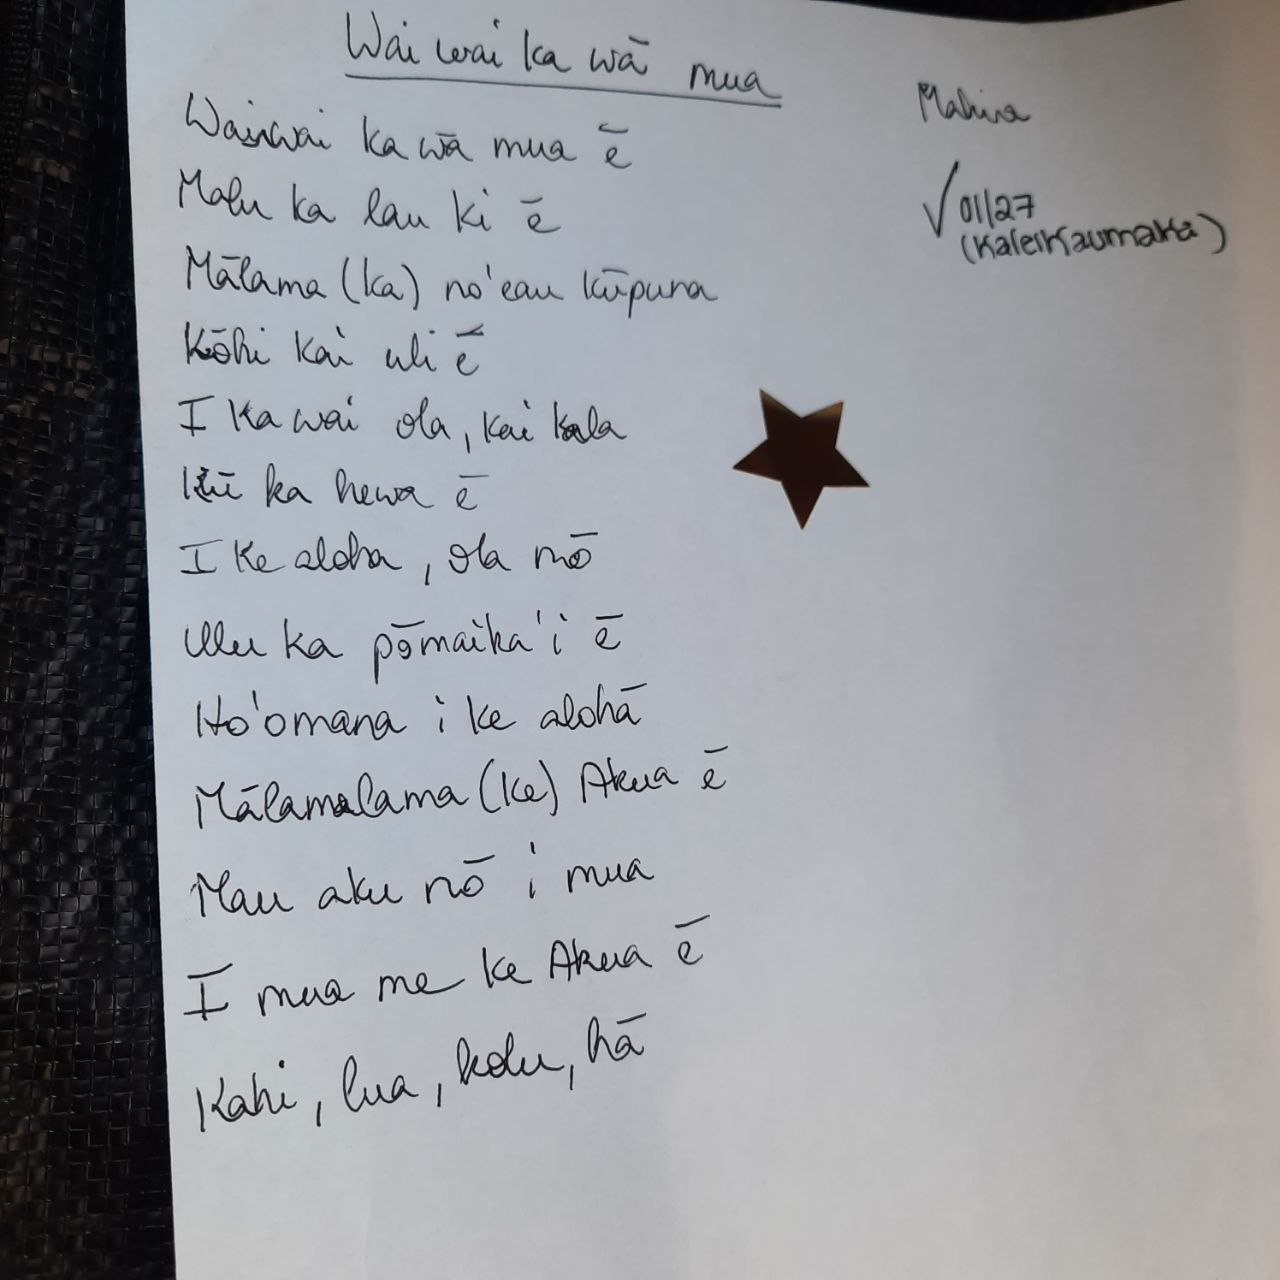 Waiwai ka wā mua
Mahina
✓ 01/27
(Kaleikaumaka)
Waiwai ka wā mua ē
Malu ka lau ki ē
Mālama (ka) no'eau kūpuna
Kōhi kai uli ē
I ka wai ola, kai kala
Kū ka hewa ē
I ke aloha, ola nō
Ulu ka pōmaika'i ē
Ho'omana i ke alohā
Mālamalama (ke) Akua ē
Mau aku nō i mua
I mua me ke Akua ē
Kahi, lua, kolu, hā